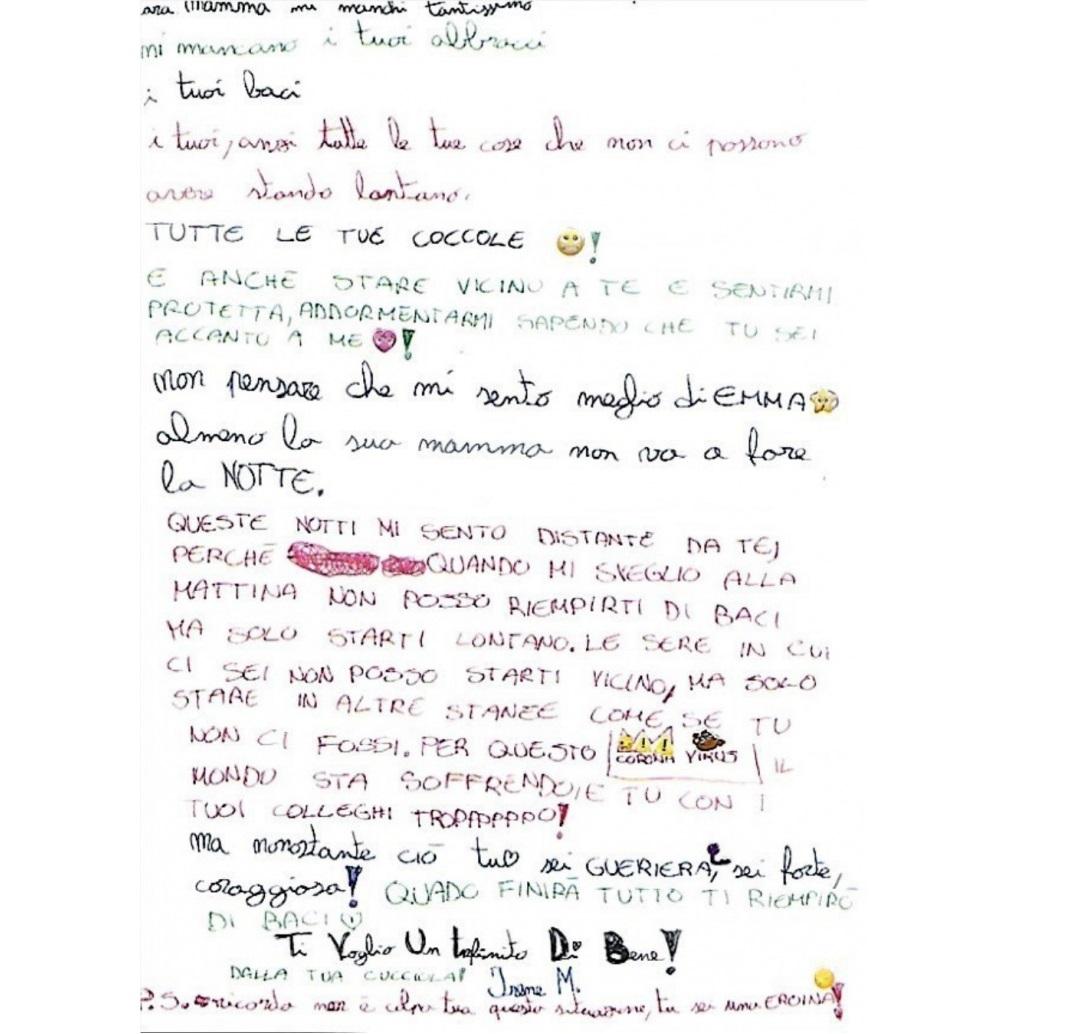 ara Mamma mi manchi tantissimo
mi mancano i tuoi abbracci
i tuoi baci
i tuoi, anzi tutte le tue cose che non ci possono
avere stando lontano.
TUTTE LE TUE COCCOLE !
E ANCHE STARE VICINO A TE E SENTIRMI
PROTETTA, ADDORMENTARMI SAPENDO CHE TU SEI
ACCANTO A ME !
non pensare che mi sento meglio di EMMA
almeno la sua mamma non va a fare
la NOTTE.
QUESTE NOTTI MI SENTO DISTANTE DA TE,
PERCHÈ QUANDO MI SVEGLIO ALLA
MATTINA NON POSSO RIEMPIRTI DI BACI
MA SOLO STARTI LONTANO. LE SERE IN CUI
CI SEI NON POSSO STARTI VICINO, MA SOLO
STARE IN ALTRE STANZE COME SE TU
NON CI FOSSI. PER QUESTO CORONA VIRUS IL
MONDO STA SOFFRENDO, E TU CON I
TUOI COLLEGHI TROPPPPPPO!
Ma nonostante ciò tu sei GUERIERA, sei forte,
coraggiosa! QUADO FINIRÀ TUTTO TI RIEMPIRÒ
DI BACI
Ti Voglio Un Infinito Di Bene!
DALLA TUA CUCCIOLA! Irene M.
P.S. ricorda non è colpa tua questa situazione, tu sei una EROINA!